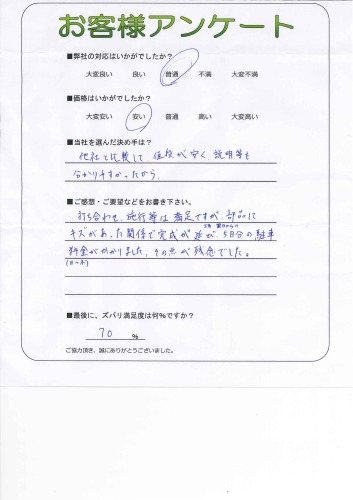 お客様アンケート
■弊社の対応はいかがでしたか?
大変良い 良い 普通 不満 大変不満
■価格はいかがでしたか?
大変安い 安い 普通 高い 大変高い
■当社を選んだ決め手は?
他社と比較して、値段が安く、説明等も
分かりやすかったから。
■ご感想・ご要望などをお書き下さい。
打ち合わせ、施行等は満足ですが、部品に
キズがあった関係で完成が延び、5日分の駐車
料金がかかりました。その点が残念でした。
■最後に、ズバリ満足度は何%ですか?
70 %
ご協力頂き、誠にありがとうございました。